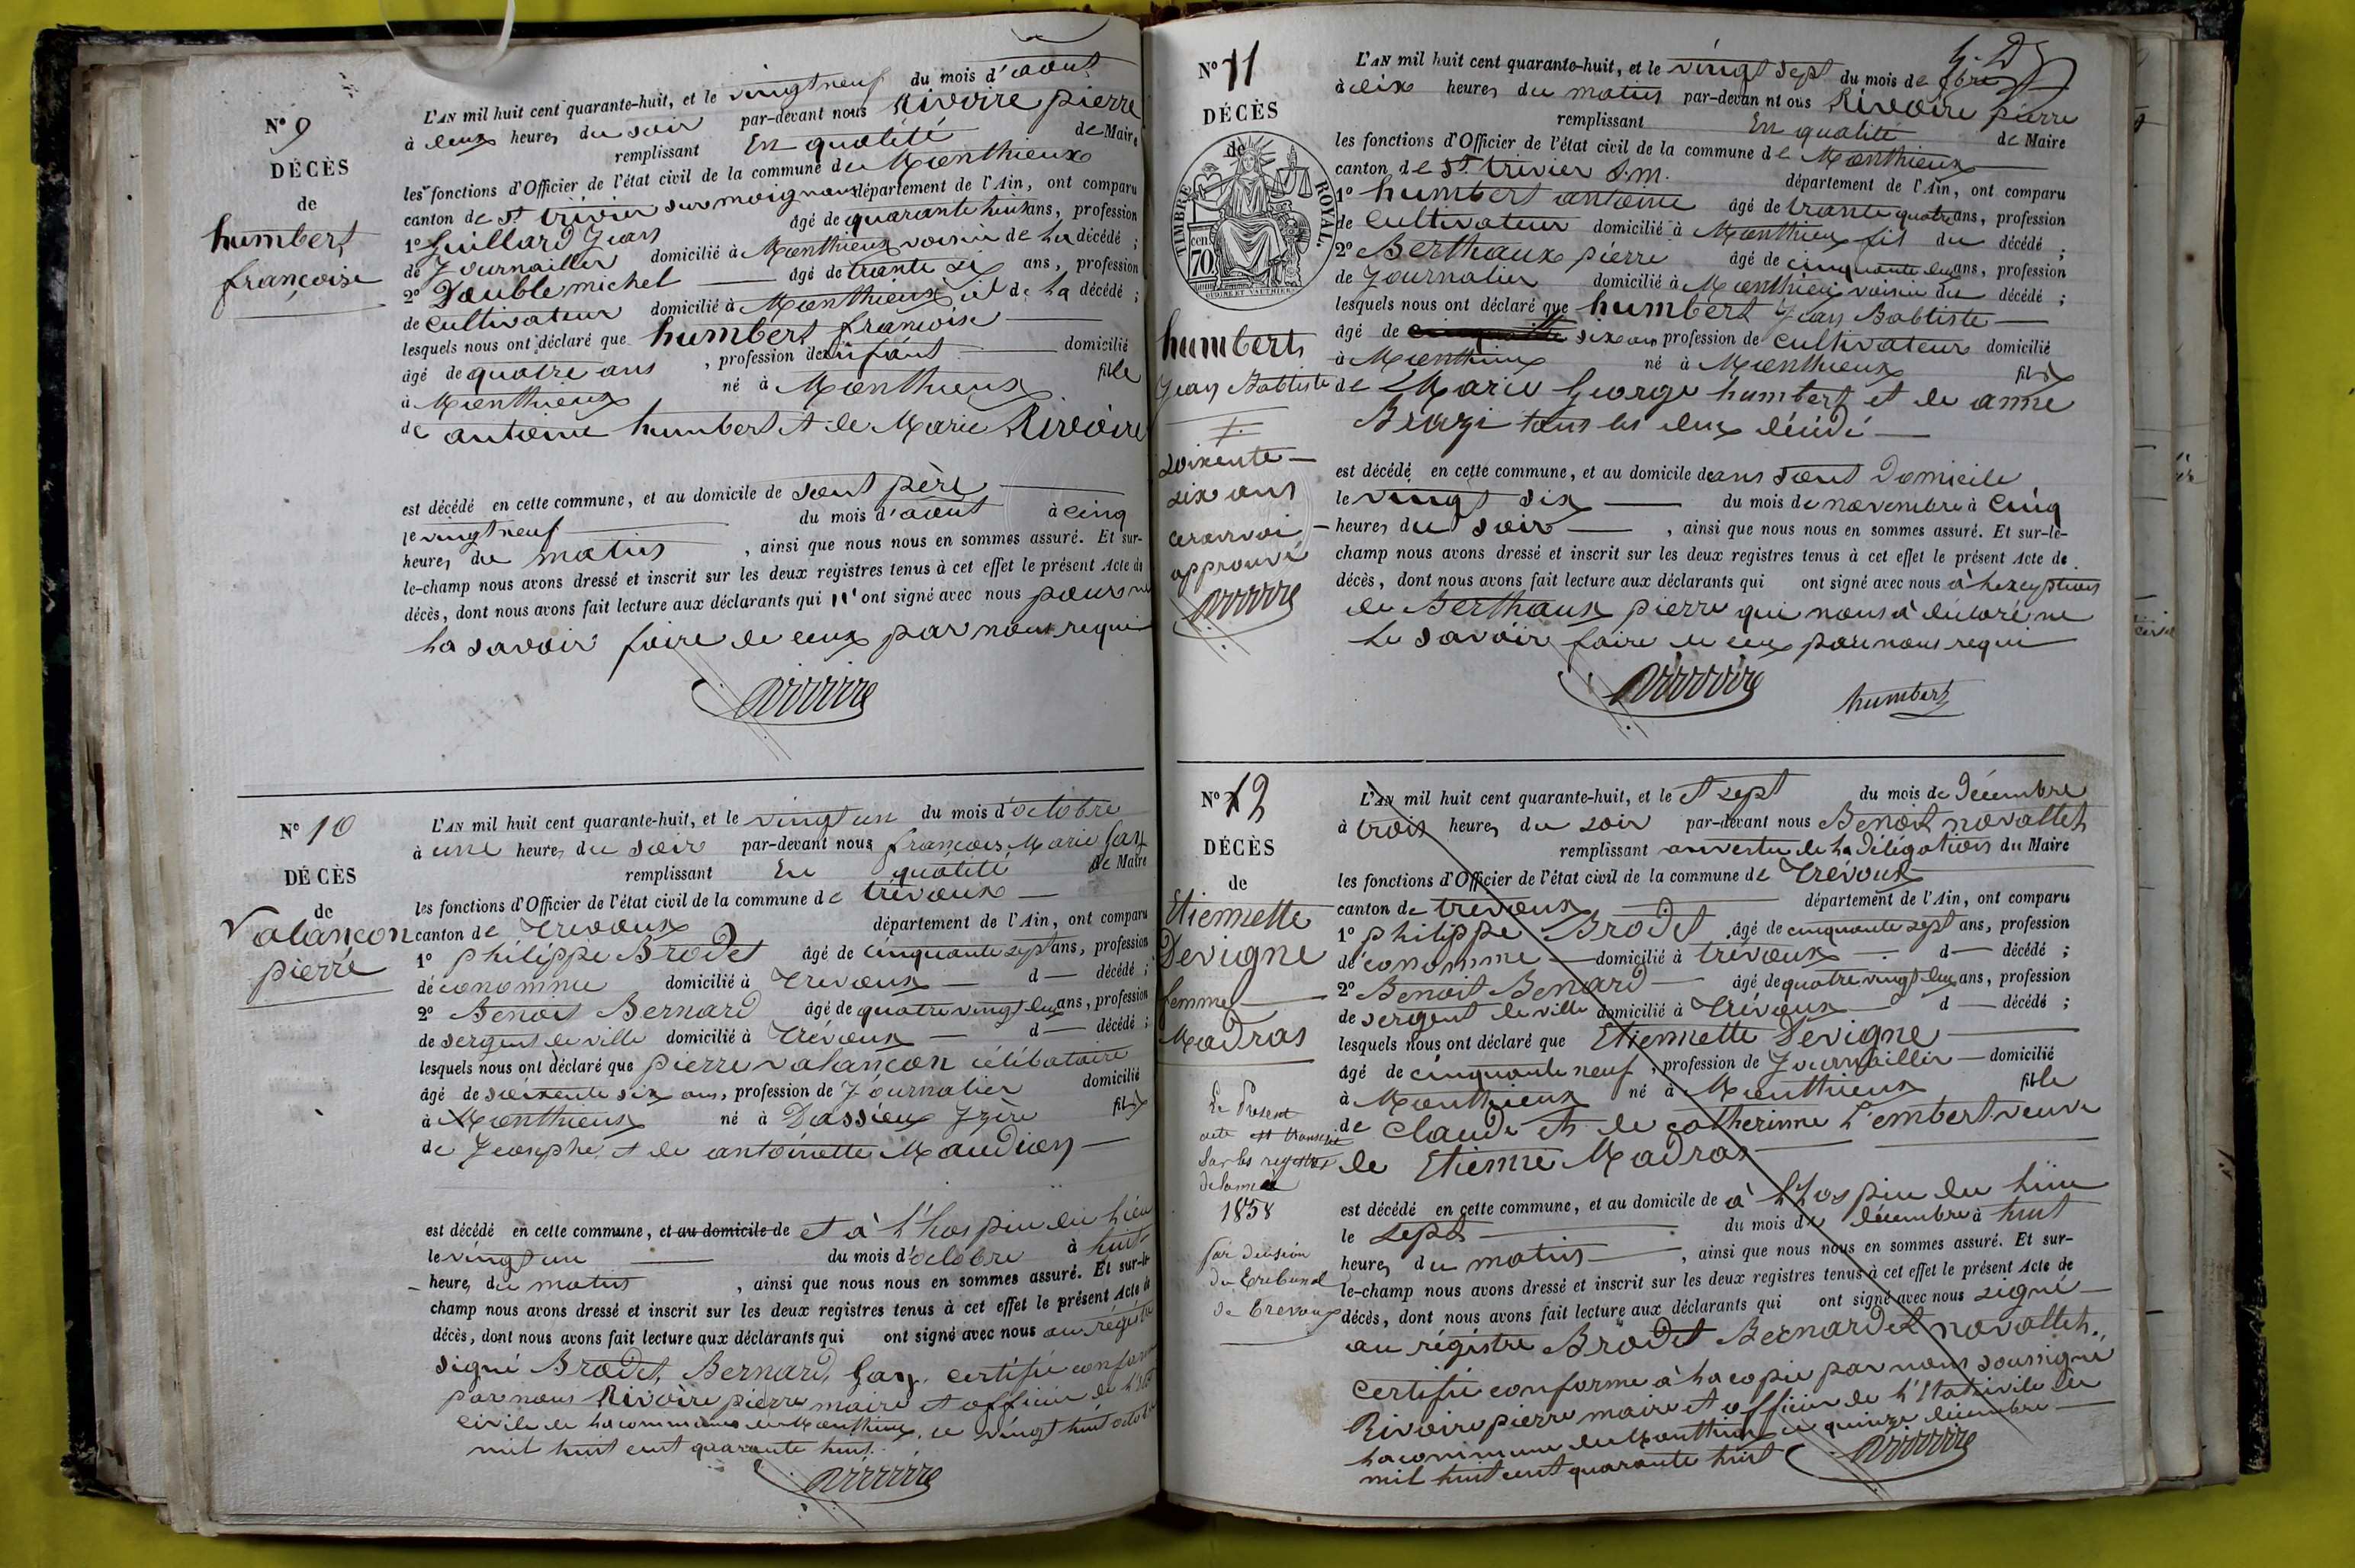 N° 9
DÉCÈS
de
humbert
françoise
L'AN mil huit cent quarante-huit, et le vingt neuf du mois d'aout
à deux heures du soir par-devant nous Rivoire pierre
remplissant En qualité de Maire
les fonctions d'Officier de l'état civil de la commune de Monthieux
canton de St trivier sur moignans département de l'Ain, ont comparu
1° Guillard Jean âgé de quarante huit ans, profession
de Journailler domicilié à Monthieux voisin de la décédé ;
2° Double michel âgé de trante six ans, profession
de Cultivateur domicilié à Monthieux de la décédé ;
lesquels nous ont déclaré que humbert françoise
âgé de quatre ans , profession d'enfant domicilié
à Monthieux né à Monthieux fille
de antoine humbert et de Marie Rivoire
est décédé en cette commune, et au domicile de sont père
le vingt neuf du mois d'aout à cinq
heures du matin , ainsi que nous nous en sommes assuré. Et sur-
le-champ nous avons dressé et inscrit sur les deux registres tenus à cet effet le présent Acte de
décès, dont nous avons fait lecture aux déclarants qui n'ont signé avec nous pour ne
la savoir faire de ceux par nous requi
N° 10
DÉCÈS
de
Valançon
pierre
L'AN mil huit cent quarante-huit, et le vingt un du mois d'octobre
à une heures du soir par-devant nous françois Marie Gay
remplissant En qualité de Maire
les fonctions d'Officier de l'état civil de la commune de trévoux
canton de trevoux département de l'Ain, ont comparu
1° philippe Brodet âgé de cinquante sept ans, profession
d'économme domicilié à trevoux d décédé ;
2° Benoit Bernard âgé de quatre vingt deux ans, profession
de sergent de ville domicilié à trévoux d décédé ;
lesquels nous ont déclaré que pierre valançon célibataire
âgé de soixente six ans, profession de Journalier domicilié
à Monthieux né à Dassieu Izère fils
de Jeosphe et de antoinette Maudion
est décédé en cette commune, et au domicile de et à l'hospiu du lieu
le vingt un du mois d'octobre à huit
heures du matin , ainsi que nous nous en sommes assuré. Et sur-le-
champ nous avons dressé et inscrit sur les deux registres tenus à cet effet le présent Acte de
décès, dont nous avons fait lecture aux déclarants qui ont signé avec nous au régistre
signé Brodet, Bernard, Gay. certifié conforme
par nous Rivoire pierre maire et officier de l'état
civile de la commune de Monthieux, ce vingt huit octobre
mil huit cent quarante huit.
N° 11
DÉCÈS
de
TIMBRE ROYAL
cen. 70
humbert
Jean Babtiste
soixente
six ans
approuvé
L'AN mil huit cent quarante-huit, et le vingt sept du mois de 9bre
à dix heures du matin par-devan nt ous Rivoire pierre
remplissant En qualité de Maire
les fonctions d'Officier de l'état civil de la commune de Monthieux
canton de St trivier S.M. département de l'Ain, ont comparu
1° humbert antoine âgé de trante quatre ans, profession
de Cultivateur domicilié à Monthieux fils du décédé ;
2° Berthaux pierre âgé de cinquante deux ans, profession
de Journalier domicilié à Monthieux voisin du décédé ;
lesquels nous ont déclaré que humbert Jean Babtiste
âgé de six ans profession de Cultivateur domicilié
à Monthieux né à Monthieux fils
de Marie George humbert et de anne
tous les deux décédé
est décédé en cette commune, et au domicile dans sont Domicile
le vingt six du mois de novembre à Cinq
heures du soir , ainsi que nous nous en sommes assuré. Et sur-le-
champ nous avons dressé et inscrit sur les deux registres tenus à cet effet le présent Acte de
décès, dont nous avons fait lecture aux déclarants qui ont signé avec nous à l'exeption
de Berthaux pierre qui nous à déclaré ne
le savoir faire de ceux par nous requi
humbert
N° 12
DÉCÈS
de
Etiennette
Devigne
femme
Madras
Le Present
acte est transcrit
sur les registres
de l'année
1858
par decision
du tribunal
de Trevoux
L'AN mil huit cent quarante-huit, et le et sept du mois de Décembre
à trois heures du soir par-devant nous Benoit novallet
remplissant anvertu de la délégation du Maire
les fonctions d'Officier de l'état civil de la commune de Trévoux
canton de trevoux département de l'Ain, ont comparu
1° philippe Brodet âgé de cinquante sept ans, profession
d'économme domicilié à trévoux d décédé ;
2° Benoit Benard âgé de quatre vingt deux ans, profession
de sergent de ville domicilié à Trévoux d décédé ;
lesquels nous ont déclaré que Etiennette Devigne
âgé de cinquante neuf , profession de Journaillier domicilié
à Monthieux né à Monthieux fille
de Claude et de catherinne L'embert veuve
de Etienne Madras
est décédé en cette commune, et au domicile de à l'hospiu du lieu
le sept du mois de décembre à huit
heures du matin , ainsi que nous nous en sommes assuré. Et sur-
le-champ nous avons dressé et inscrit sur les deux registres tenus à cet effet le présent Acte de
décès, dont nous avons fait lecture aux déclarants qui ont signé avec nous signé
au régistre Brodet Bernard et novallet.
certifié conforme à la copie par nous soussigné
Rivoire pierre maire et officier de l'état civile de
la commune de Monthieux ce quinze décembre
mil huit cent quarante huit